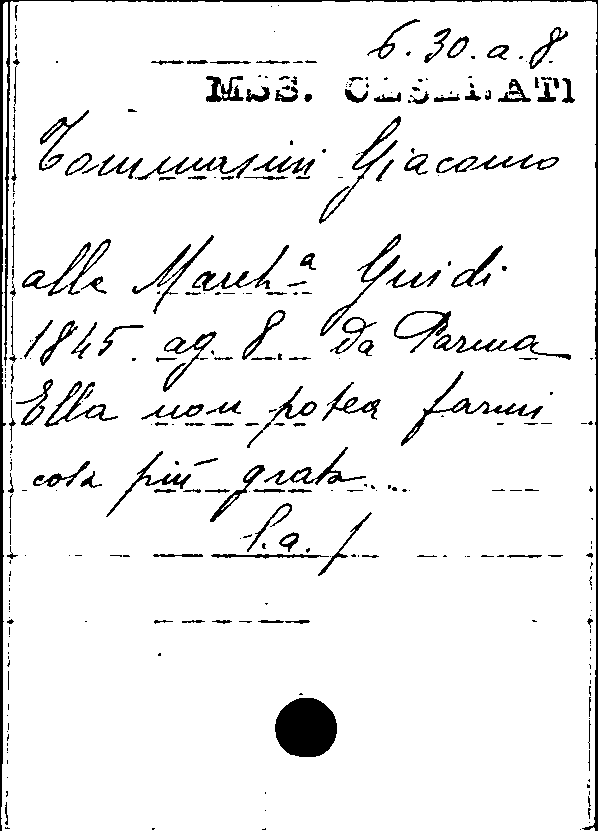 6.30.a.8
MSS. CESENATI
Tommasini Giacomo
alla March.a Guidi
1845. ag. 8. Da Parma
Ella non potea farmi
cosa più grata...
l.a. f